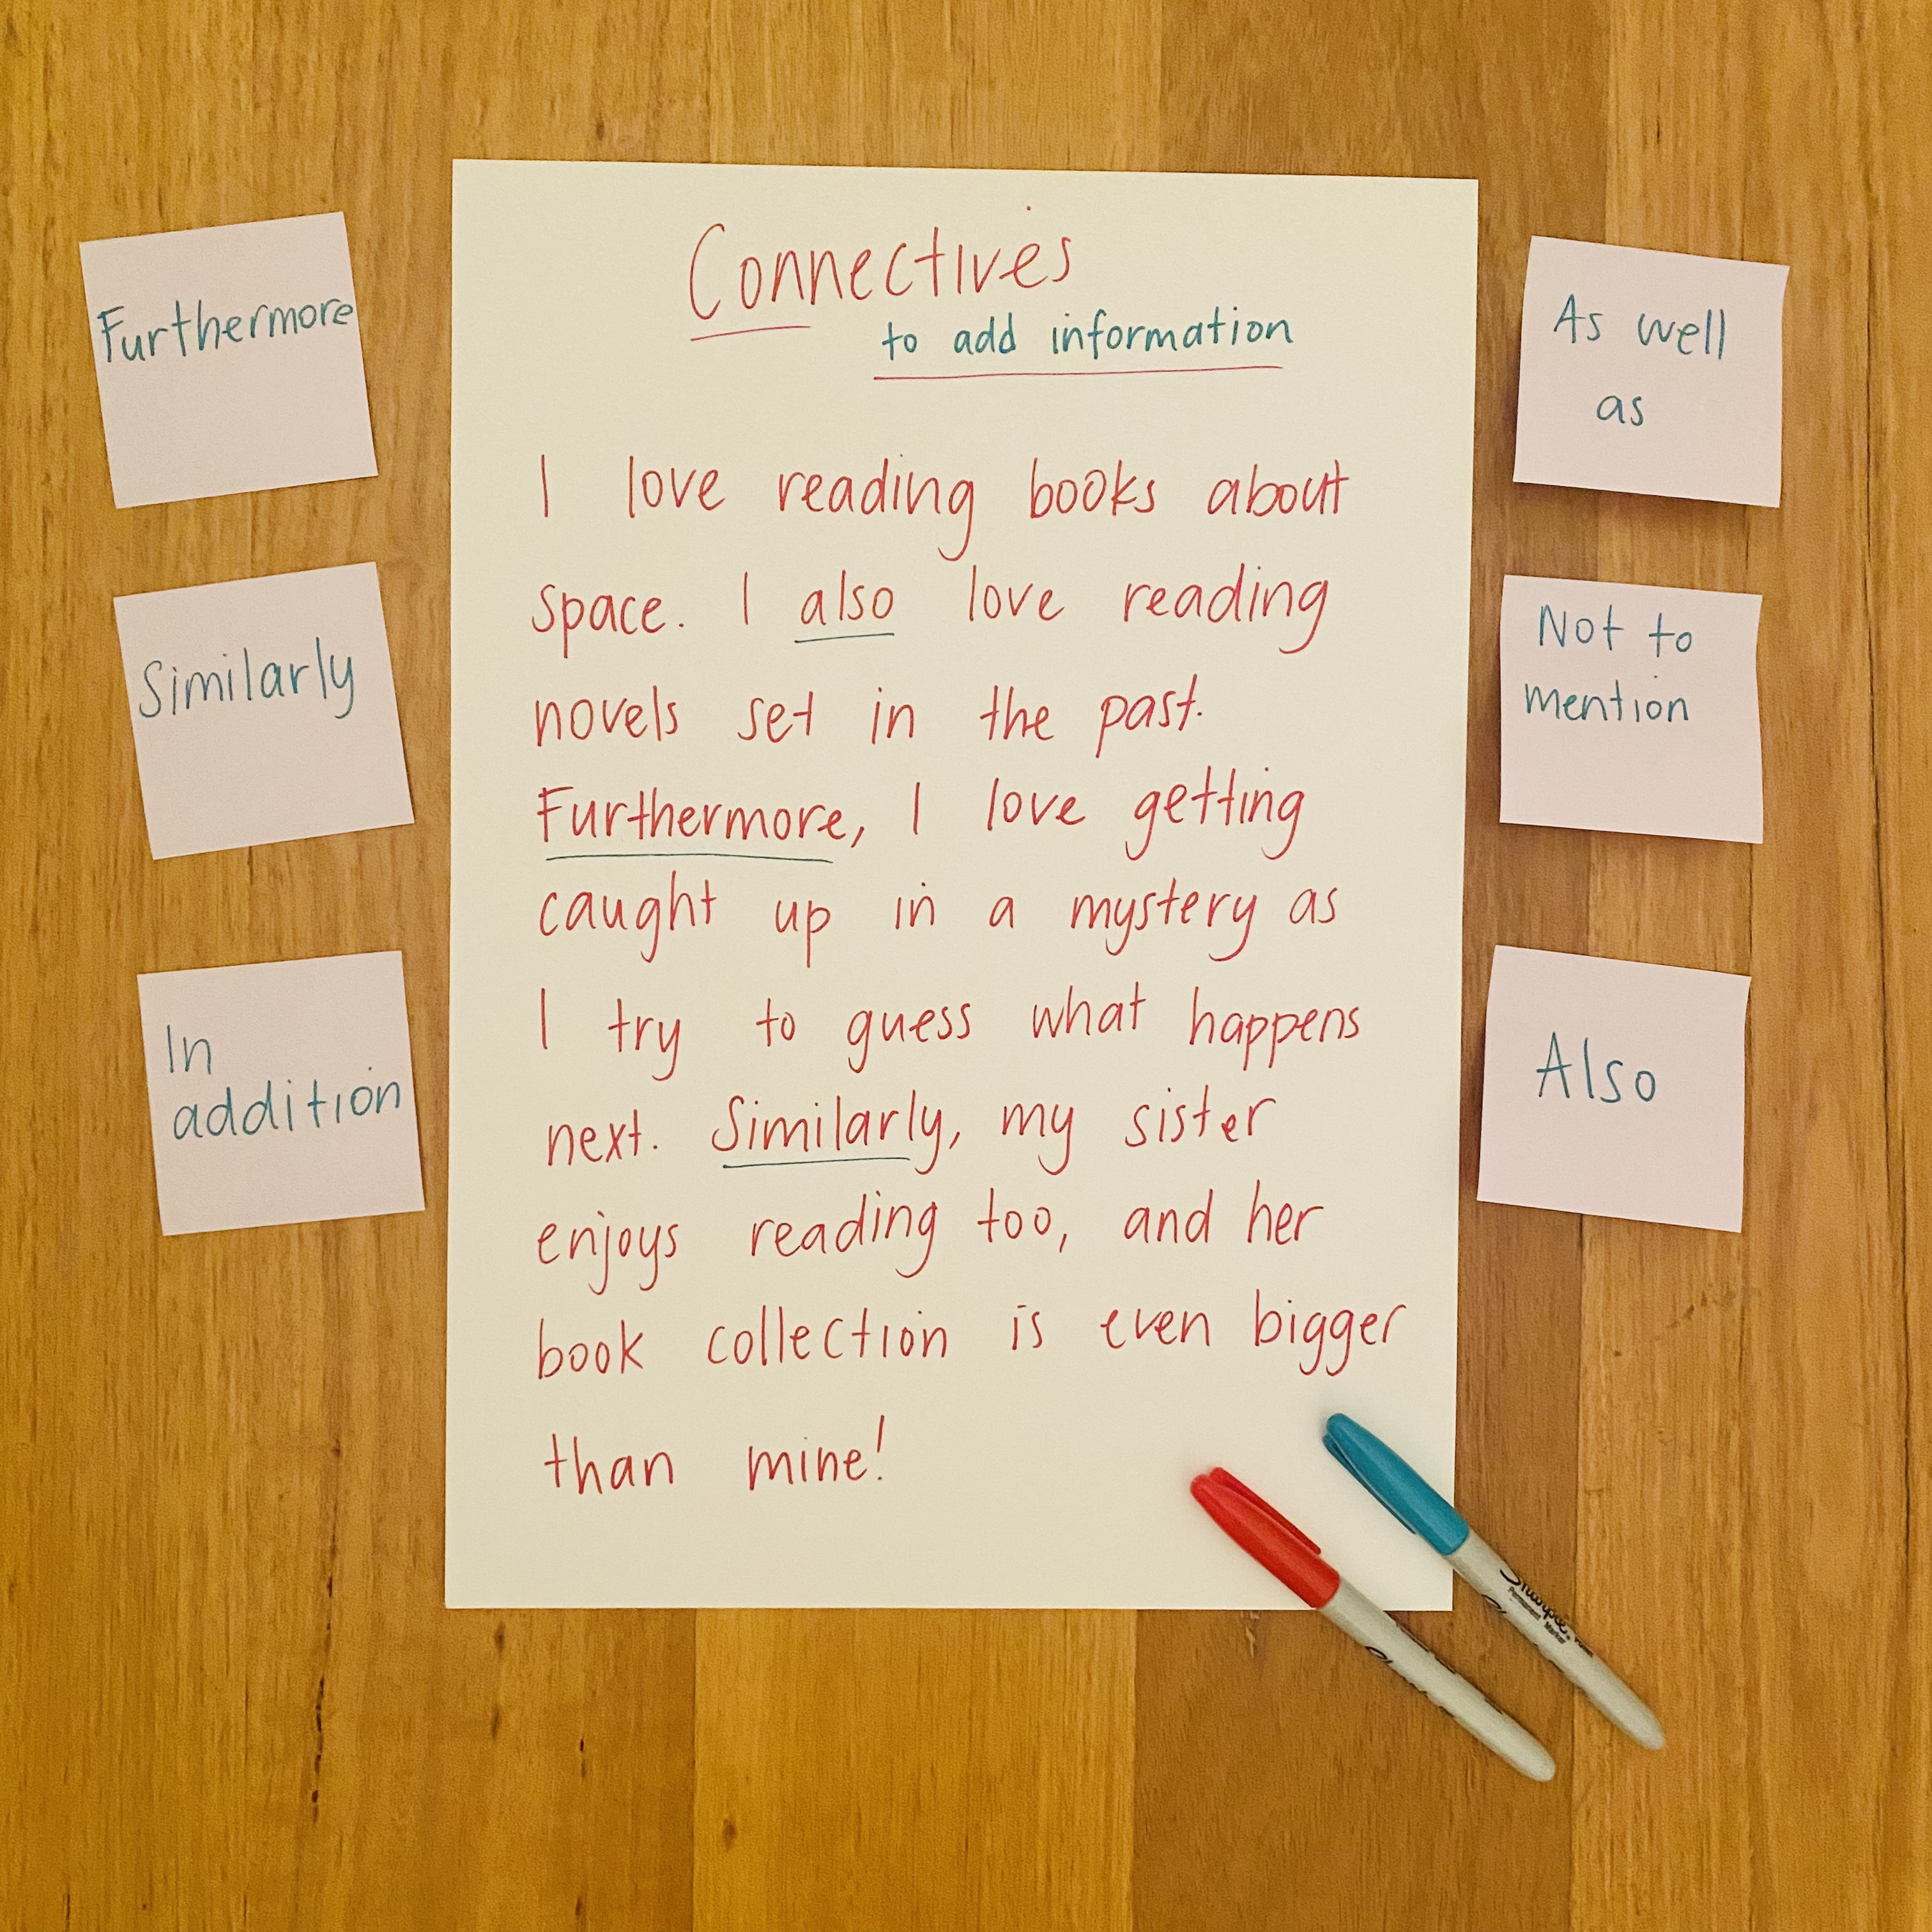 Connectives
to add information
I love reading books about
space. I also love reading
novels set in the past.
Furthermore, I love getting
caught up in a mystery as
I try to guess what happens
next. Similarly, my sister
enjoys reading too, and her
book collection is even bigger
than mine!
Furthermore
Similarly
In
addition
As well
as
Not to
mention
Also
Sharpie
Permanent
Marker